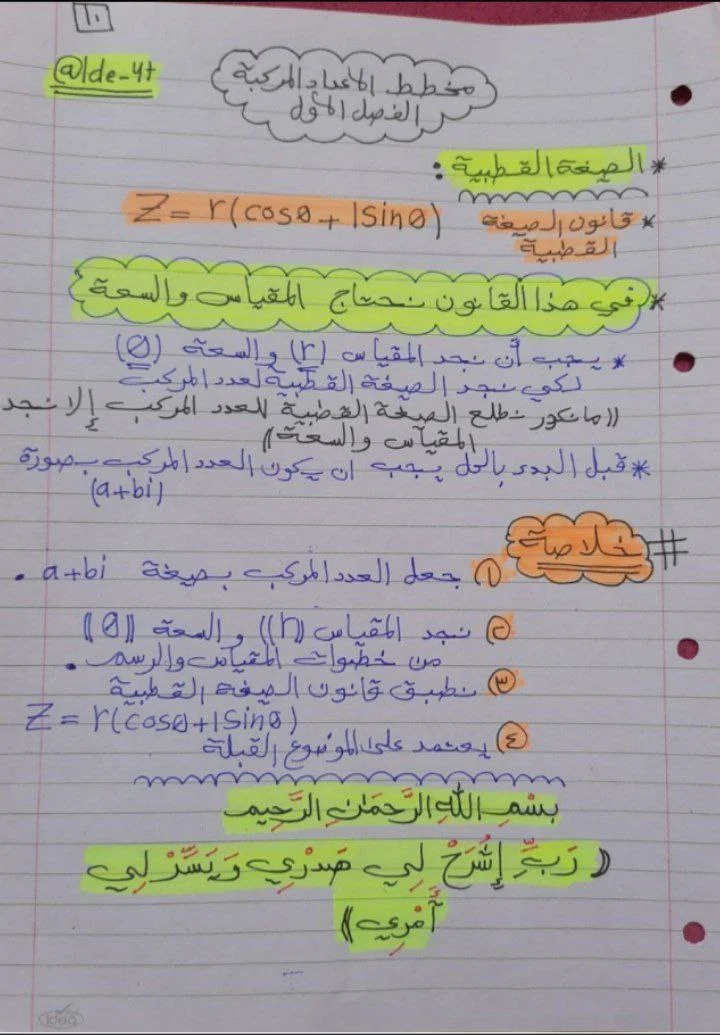 ١٠
@lde-4t
مخطط الاعداد المركبة
الفصل الأول
* الصيغة القطبية :
* قانون الصيغة Z = r(cosθ + ISinθ)
القطبية
* في هذا القانون نحتاج المقياس والسعة
* يجب أن نجد المقياس (r) والسعة (θ)
لكي نجد الصيغة القطبية لعدد المركب
((مانكدر نطلع الصيغة القطبية للعدد المركب إلا نجد
المقياس والسعة))
* قبل البدء بالحل يجب ان يكون العدد المركب بصورة
(a+bi)
# خلاصة
① جعل العدد المركب بصيغة a+bi .
② نجد المقياس ((r)) والسعة ((θ))
من خطوات المقياس والرسم .
③ نطبق قانون الصيغة القطبية
Z = r(cosθ+ISinθ)
④ يعتمد على الموضوع القبلة
بِسْمِ اللَّهِ الرَّحْمَٰنِ الرَّحِيمِ
(( رَبِّ إِشْرَحْ لِي صَدْرِي وَيَسِّرْ لِي
أَمْرِي ))